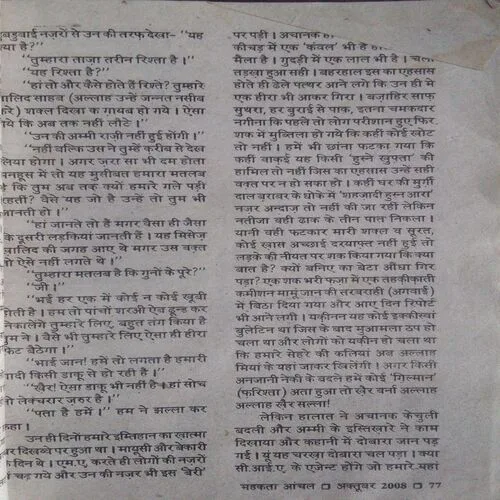 डबडुबाई नज़रों से उन की तरफ़ देखा– "यह
या है?"
"तुम्हारा ताज़ा तरीन रिश्ता है।"
"यह रिश्ता है?"
"हां तो और कैसे होते हैं रिश्ते? तुम्हारे
ालिद साहब (अल्लाह उन्हें जन्नत नसीब
रे) शक्ल दिखा के गायब हो गये। ऐसा
ये कि अब तक नहीं लौटे।"
"उन की अम्मी राज़ी नहीं हुई होंगी।"
"नहीं बल्कि उस ने तुम्हें करीब से देख
लिया होगा। अगर ज़रा सा भी दम होता
नहूस में तो यह मुसीबत हमारा मतलब
कि तुम अब तक क्यों हमारे गले पड़ी
हतीं? वैसे यह जो है उन्हें तो तुम भी
ानती हो।"
"हां जानते तो हैं मगर वैसा ही जैसा
के दूसरी लड़कियां जानती हैं। यह मिसेज़
ालिद की जगह आए थे मगर उस वक़्त
ो ऐसे नहीं लगते थे।"
"तुम्हारा मतलब है कि गुनों के पूरे?"
"जी।"
"भई हर एक में कोई न कोई खूबी
होती है। हम तो पांचों शरओ ऐब ढून्ड कर
निकालेंगे तुम्हारे लिए, बहुत तंग किया है
तुम ने। वैसे भी तुम्हारे लिए ऐसा ही हीरा
फिट बैठेगा।"
"भाई जान! हमें तो लगता है हमारी
शादी किसी डाकू से हो रही है।"
"ख़ैर! ऐसा डाकू भी नहीं है। हां सोच
लेक्चरार ज़रुर है।"
"पता है हमें।" हम ने झल्ला कर
कहा।
उन ही दिनों हमारे इम्तिहान का ख़ात्मा
दिखब्बे पर हुआ था। मायूसी और बेकारी
के दिन थे। एम.ए. करते ही लोगों की नज़रों
चढ़ गये और उन की नज़र भी इस 'बेरी'
पर पड़ी। अचानक
कीचड़ में एक 'कंवल' भी है
मैला है। गुदड़ी में एक लाल भी है।
तड़खा हुआ सही। बहरहाल इस का एहसास
होते ही ढेले पत्थर आने लगे कि उन ही में
एक हीरा भी आकर गिरा। बज़ाहिर साफ़
सुथरा, हर बुराई से पाक, इतना चमकदार
नगीना कि पहले तो लोग परीशान हुए फिर
शक में मुब्तिला हो गये कि कहीं कोई खोट
तो नहीं। हमें भी छांना फटका गया कि
कहीं वाक़ई यह किसी 'हुस्ने खुफ़्ता' की
हामिल तो नहीं जिस का एहसास उन्हें सही
वक़्त पर न हो सका हो। कहीं घर की मुर्गी
दाल बराबर के धोके में 'शहज़ादी हुस्न आरा'
नज़र अन्दाज़ तो नहीं की जा रही लेकिन
नतीजा वही ढाक के तीन पात निकला।
यानी वही फटकार मारी शक्ल व सूरत,
कोई ख़ास अच्छाई दरयाफ़्त नहीं हुई तो
लड़के की नीयत पर शक किया गया कि क्या
बात है? क्यों बनिए का बेटा औंधा गिर
पड़ा? एक शक भरी फ़ज़ा में एक तहकीकाती
कमीशन मामूं जान की सरबराही (अगवाई)
में बिठा दिया गया और आए दिन रिपोर्ट
भी आने लगी। यक़ीनन यह कोई इक्कीसवां
बुलेटिन था जिस के बाद मुआमला ठप हो
चला था और लोगों को यक़ीन हो चला था
कि हमारे सेहरे की कलियां अब अल्लाह
मियां के यहां जाकर खिलेंगी। अगर किसी
अनजानी नेकी के बदले हमें कोई 'गिल्मान'
(फ़रिश्ता) अता हुआ तो ख़ैर वर्ना अल्लाह
अल्लाह ख़ैर सल्ला!
लेकिन हालात ने अचानक केंचुली
बदली और अम्मी के इस्तिख़ारे ने काम
दिखाया और कहानी में दोबारा जान पड़
गई। यूं यह चरखा दोबारा चल पड़ा। क्या
सी.आई.ए. के एजेन्ट होंगे जो हमारे यहां
महकता आंचल □ अक्तूबर 2008 □ 77